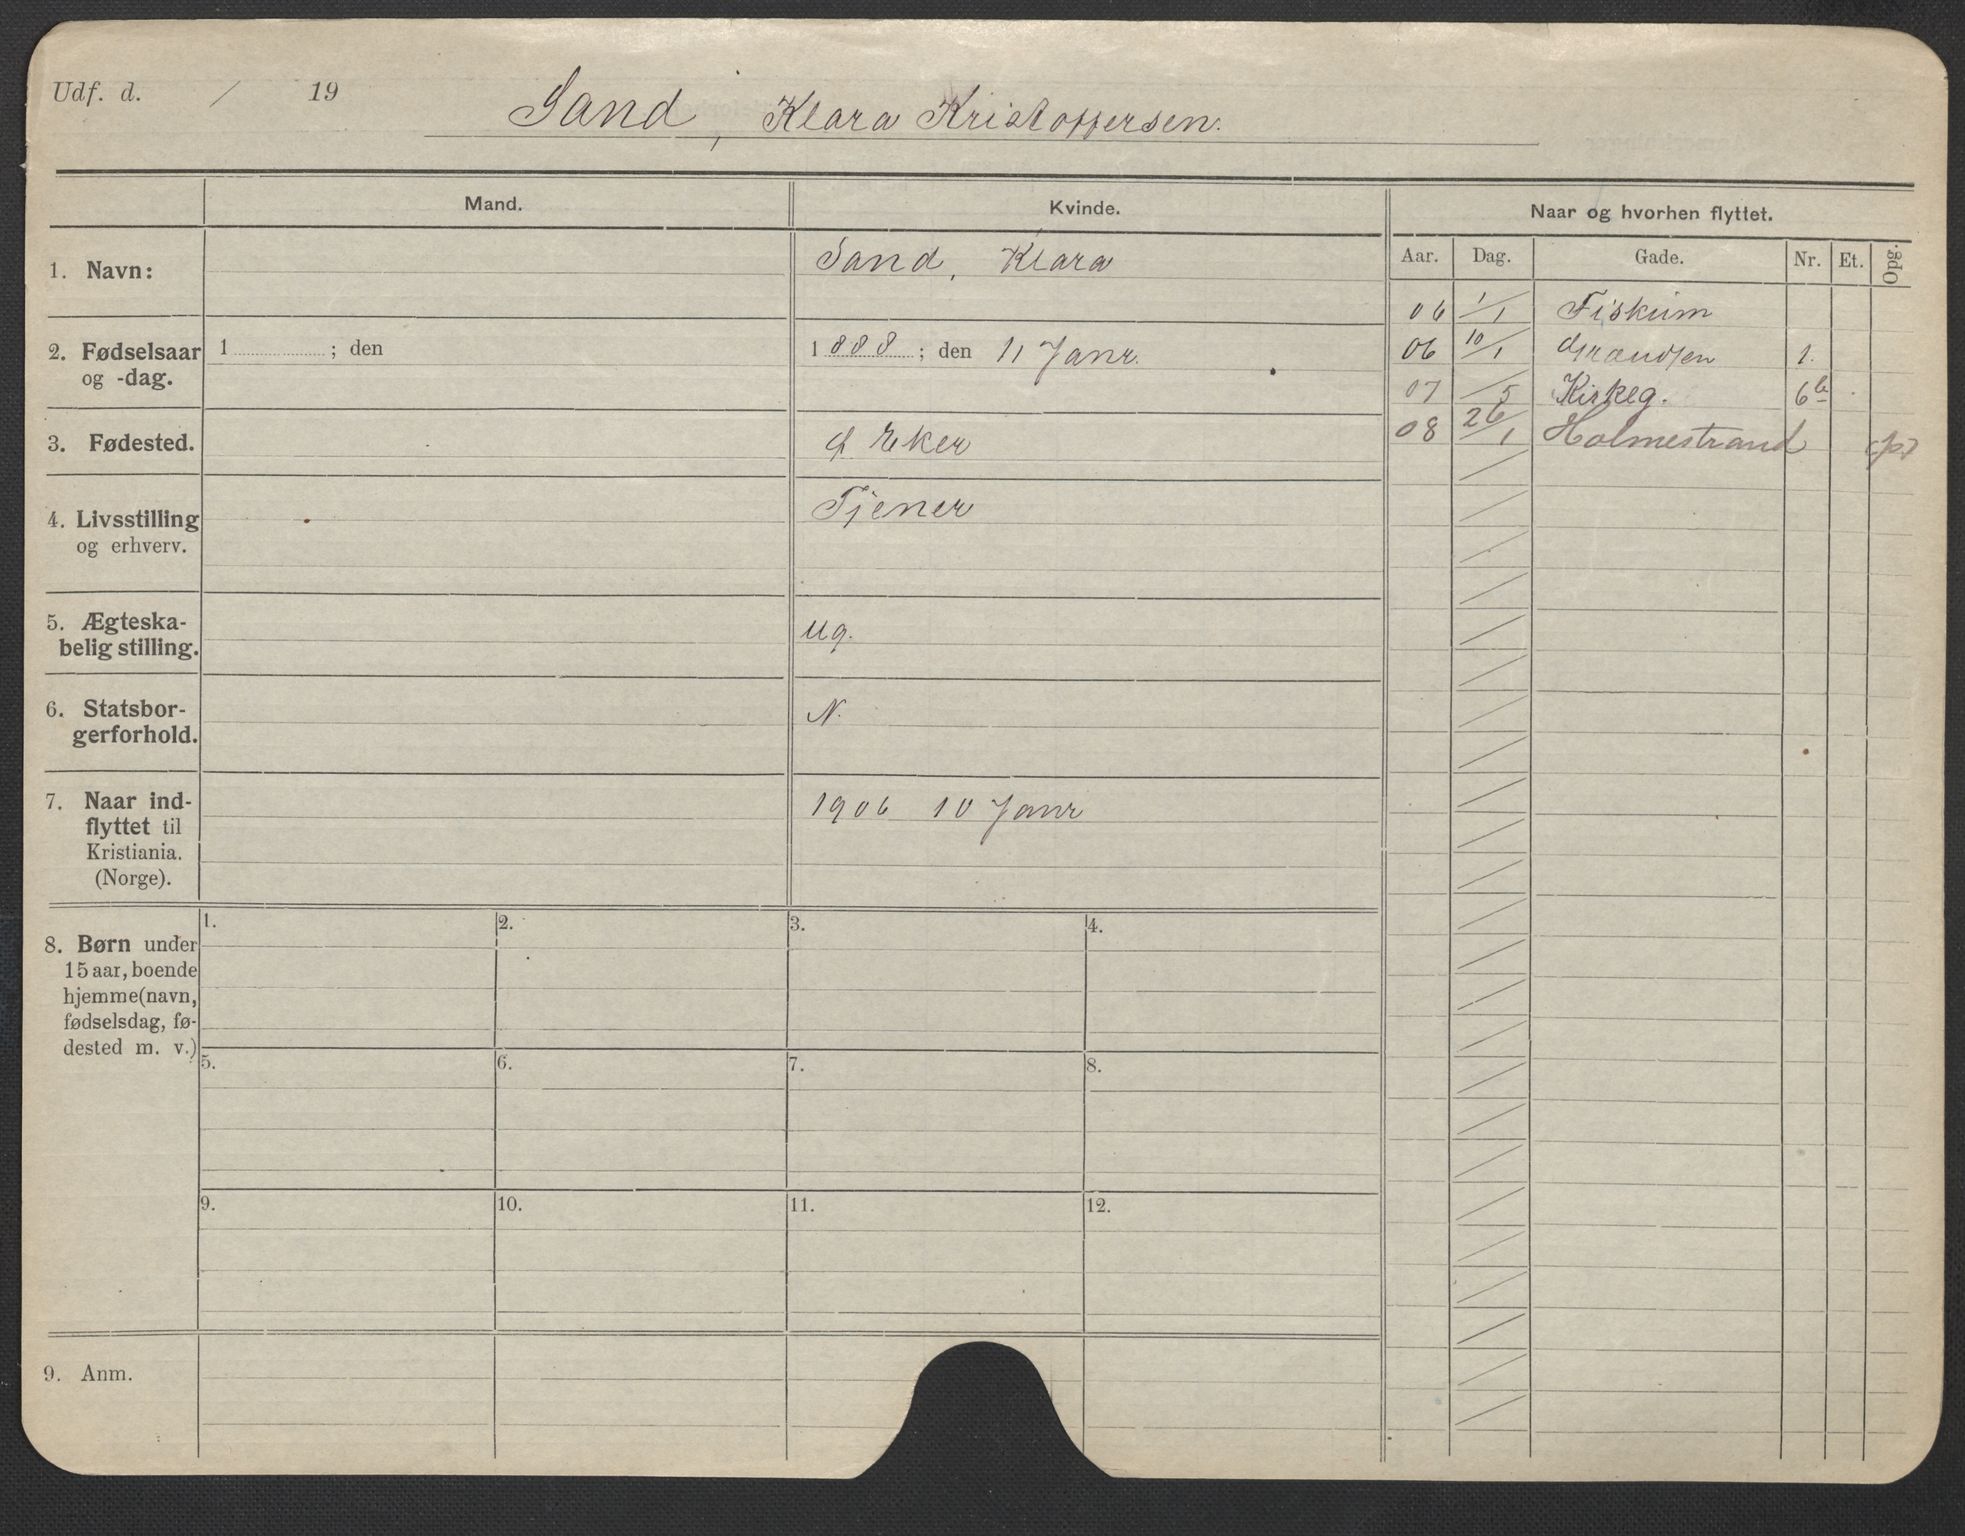 Udf. d. / 19
Sand, Klara Kristoffersen.
Mand. Kvinde. Naar og hvorhen flyttet.
Aar. Dag. Gade. Nr. Et. Opg.
1. Navn: Sand, Klara
2. Fødselsaar og -dag. 1 ; den
1888; den 11 Janr.
3. Fødested. Eker
4. Livsstilling og erhverv. Tjener
5. Ægteska-
belig stilling. ug.
6. Statsbor-
gerforhold. N.
7. Naar ind-
flyttet til
Kristiania.
(Norge).
1906 10 Janr
06 1/1 Fiskum
06 10/1 1.
07 /5 Kirkeg. 6b
08 26/1 Holmestrand (p)
8. Børn under
15 aar, boende
hjemme (navn,
fødselsdag, fø-
dested m. v.)
1. 2. 3. 4.
5. 6. 7. 8.
9. 10. 11. 12.
9. Anm.